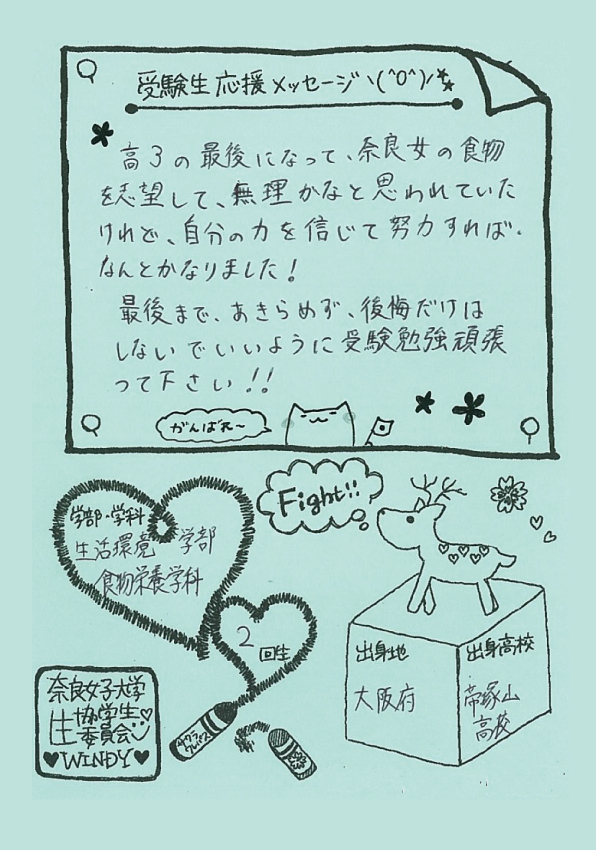 受験生応援メッセージヽ(^O^)ノ
高3の最後になって、奈良女の食物
を志望して、無理かなと思われていた
けれど、自分の力を信じて努力すれば、
なんとかなりました!
最後まで、あきらめず、後悔だけは
しないでいいように受験勉強頑張
って下さい!!
がんばれ〜
Fight!!
学部・学科
生活環境 学部
食物栄養学科
2 回生
出身地
大阪府
出身高校
帝塚山
高校
奈良女子大学
生協学生
委員会
WINDY
サクラ
クレパス